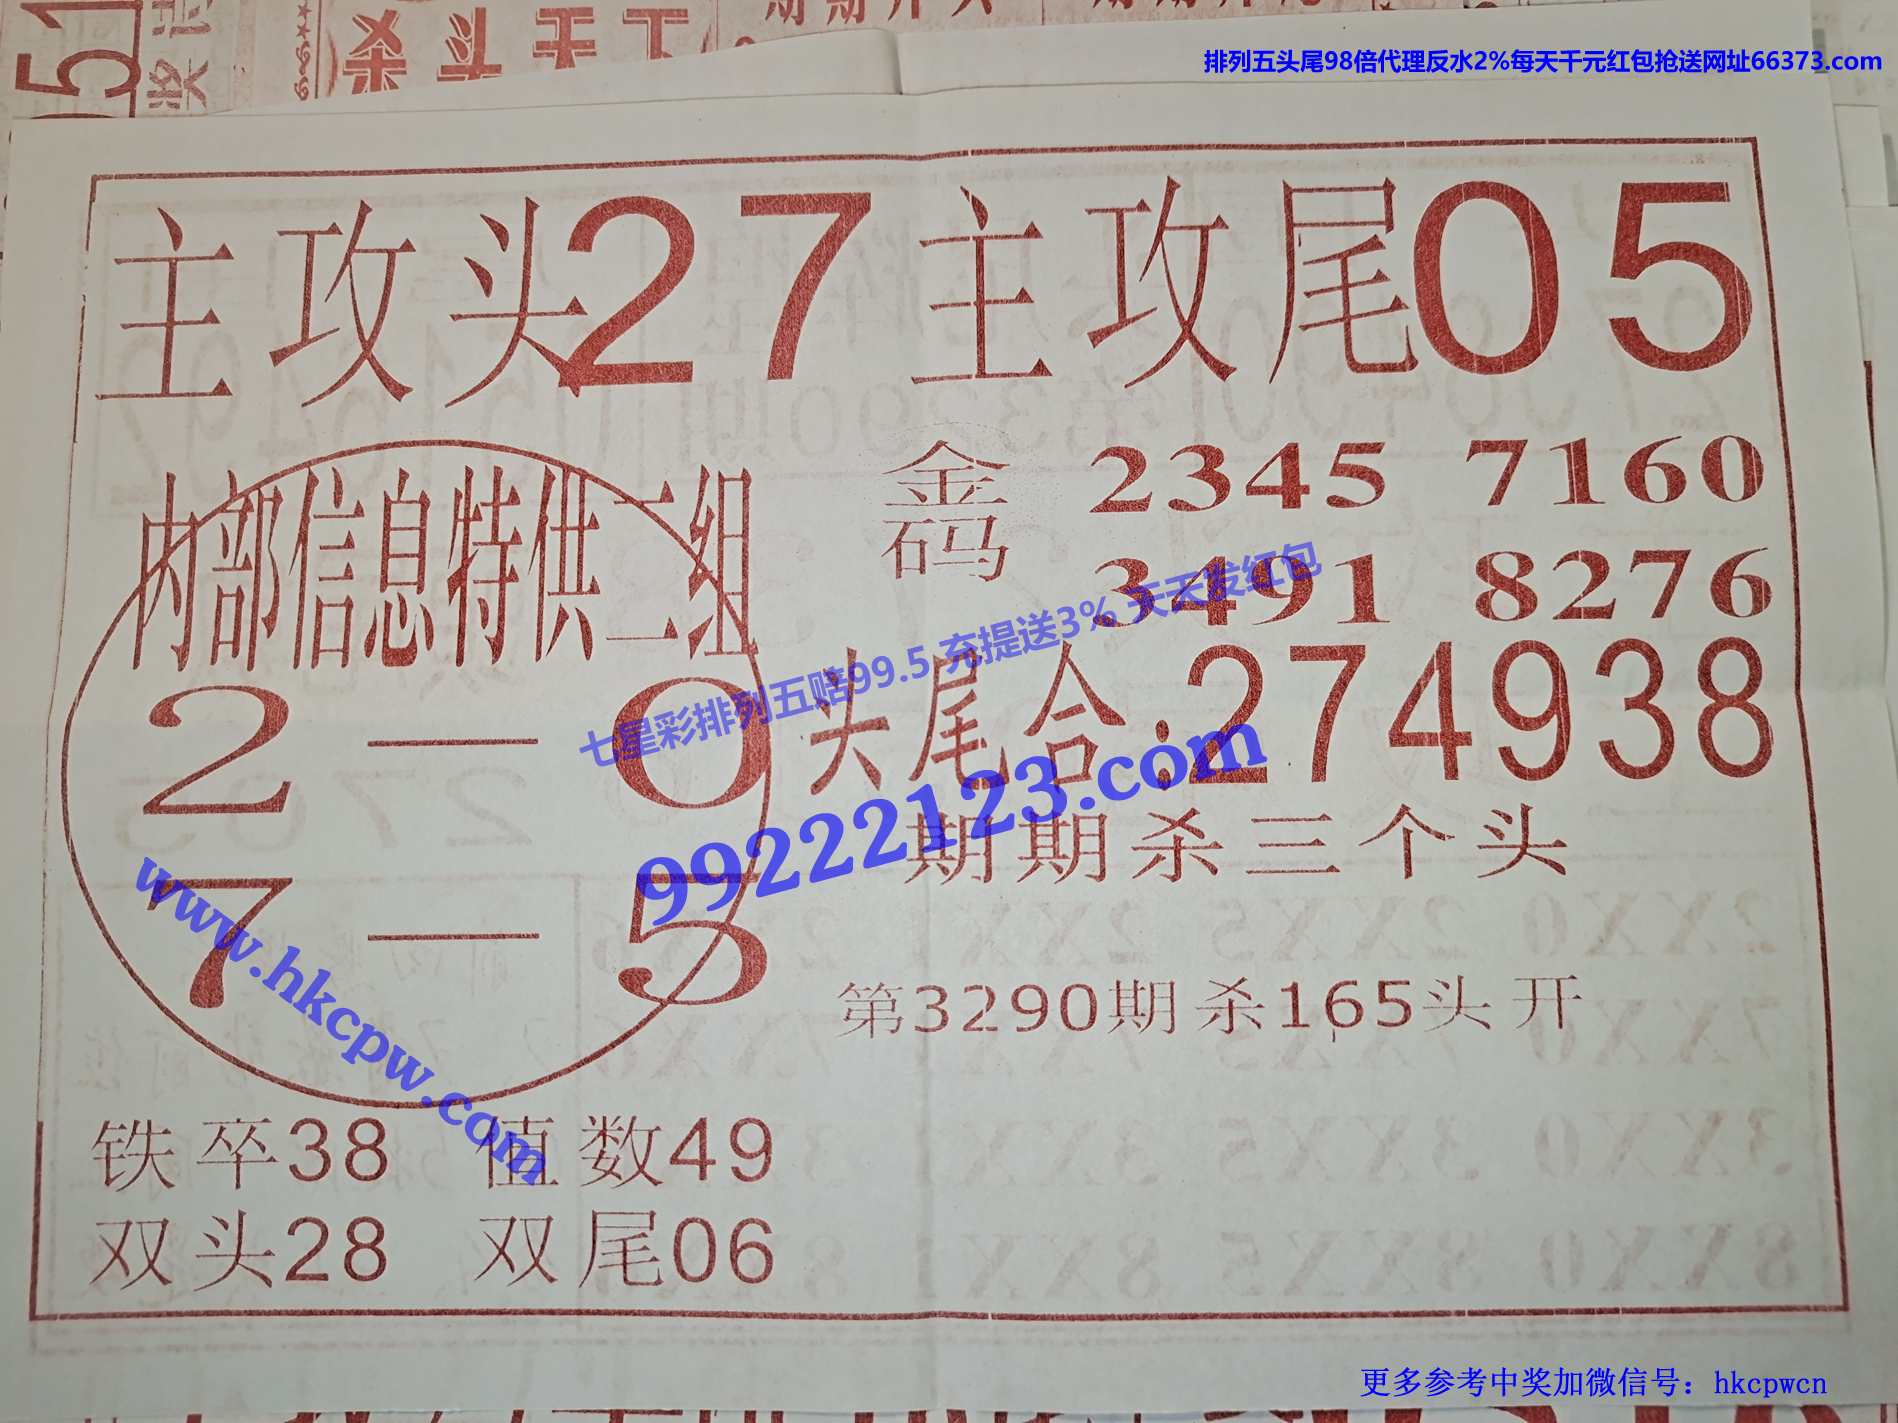 排列五头尾98倍代理反水2%每天千元红包抢送网址66373.com
主攻头27 主攻尾05
内部信息特供二组
2—0
7—5
金码 2345 7160
3491 8276
头尾合:274938
期期杀三个头
第3290期杀165头开
铁卒38 值数49
双头28 双尾06
七星彩排列五赔99.5 充提送3% 天天发红包
99222123.com
www.hkcpw.com
更多参考中奖加微信号：hkcpwcn